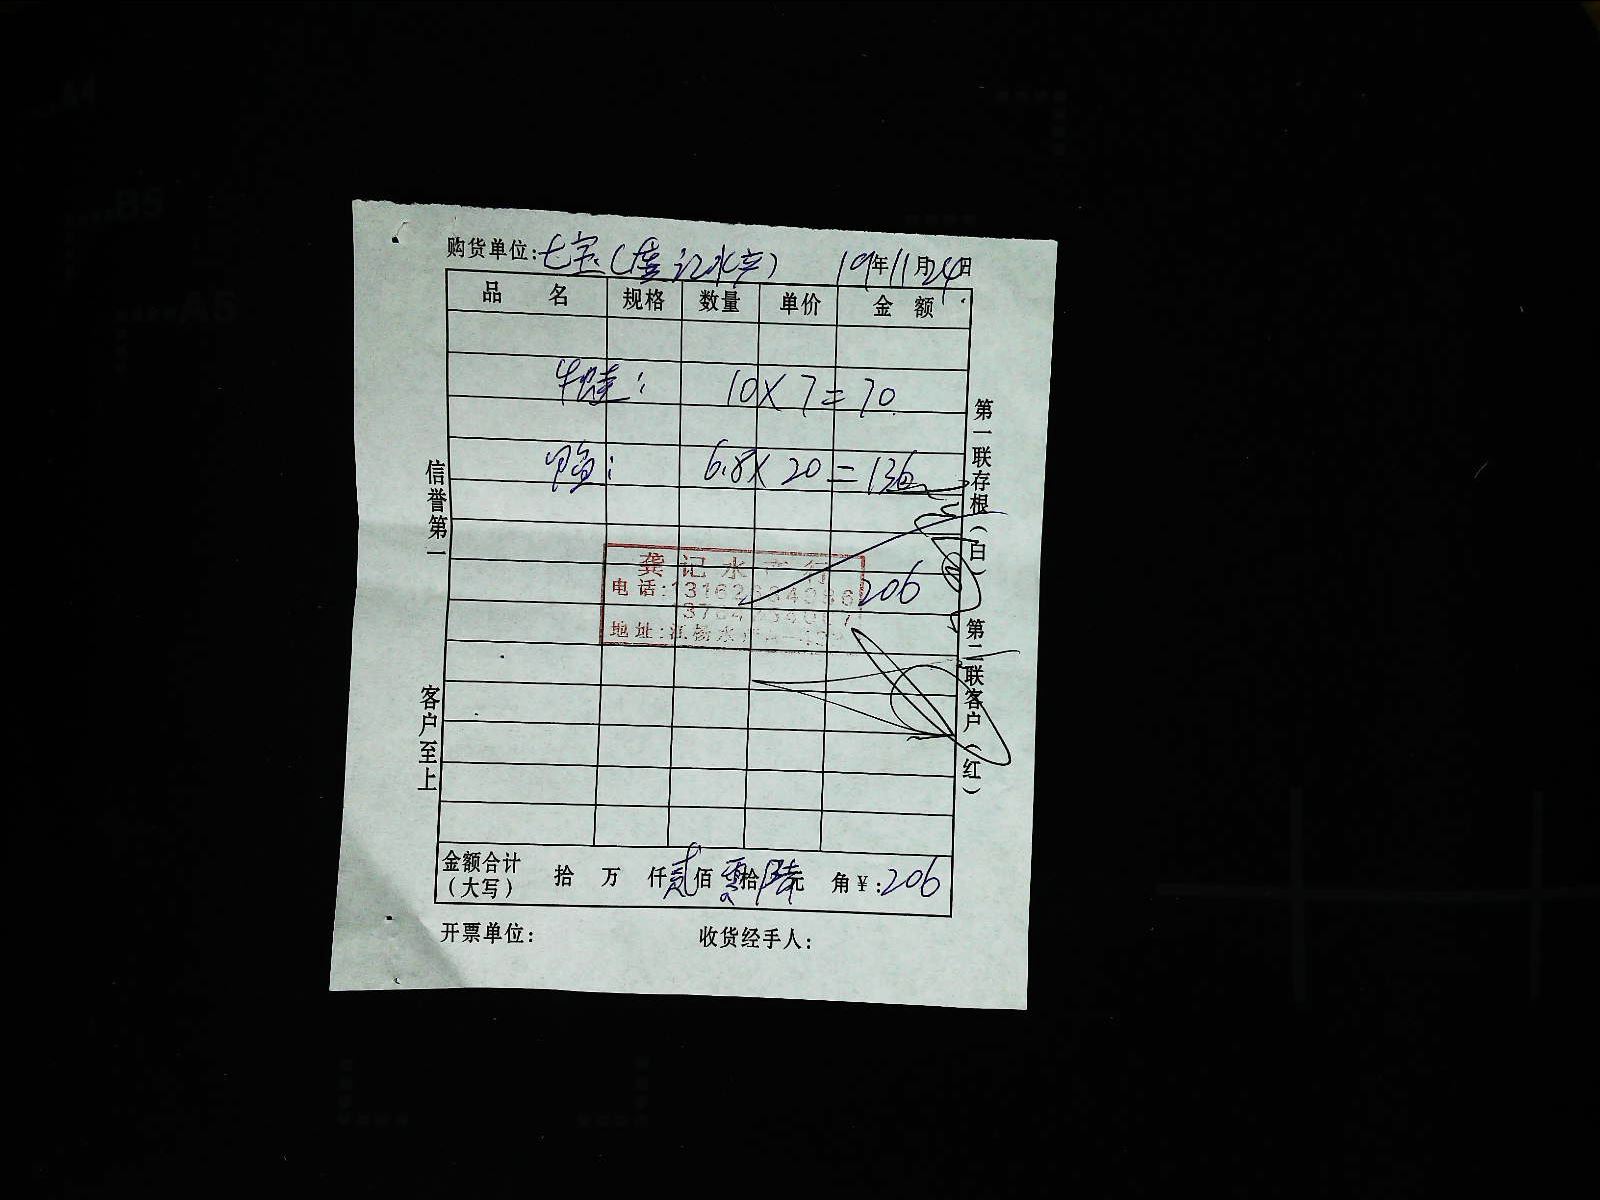 购货单位:七宝(龚记水产) 19年11月24日
品 名 规格 数量 单价 金 额
牛蛙: 10×7=70
甲鱼: 6.8×20=136
206
龚记水产行
电话:
地址:江杨水产
金额合计(大写) 拾 万 仟贰佰零拾陆元 角¥:206
开票单位: 收货经手人:
信誉第一
客户至上
第一联存根(白)
第二联客户(红)